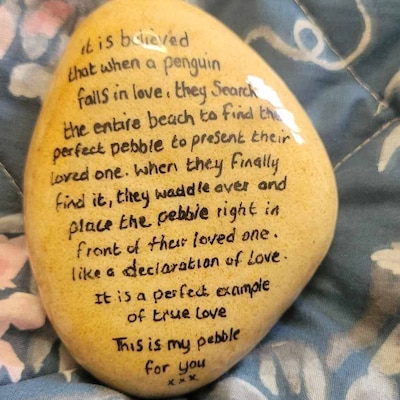 it is believed
that when a penguin
falls in love, they Search
the entire beach to find the
perfect pebble to present their
loved one. when they finally
find it, they waddle over and
place the pebble right in
front of their loved one.
like a declaration of Love.
It is a perfect example
of true Love
This is my pebble
for you
x x x